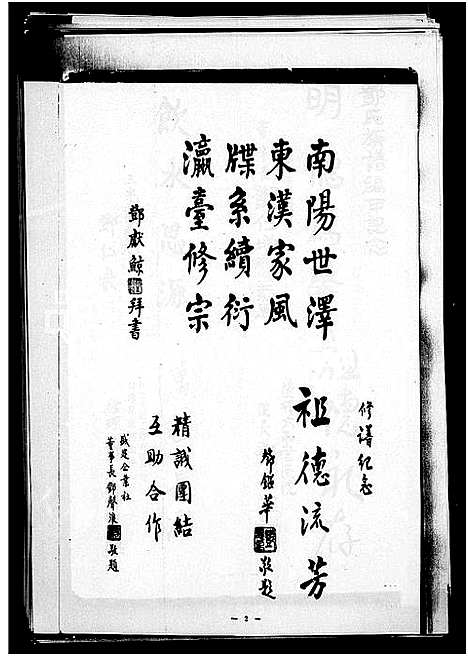 南陽世澤
東漢家風
牒系續衍
瀛臺修宗
鄧獻鯨拜書
修譜紀念
祖德流芳
敬題
精誠團結
互助合作
董事長鄧聲浪敬題
— 2 —